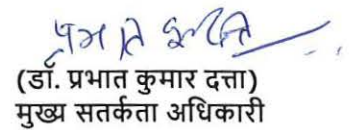 (डॉ. प्रभात कुमार दत्ता)
मुख्य सतर्कता अधिकारी